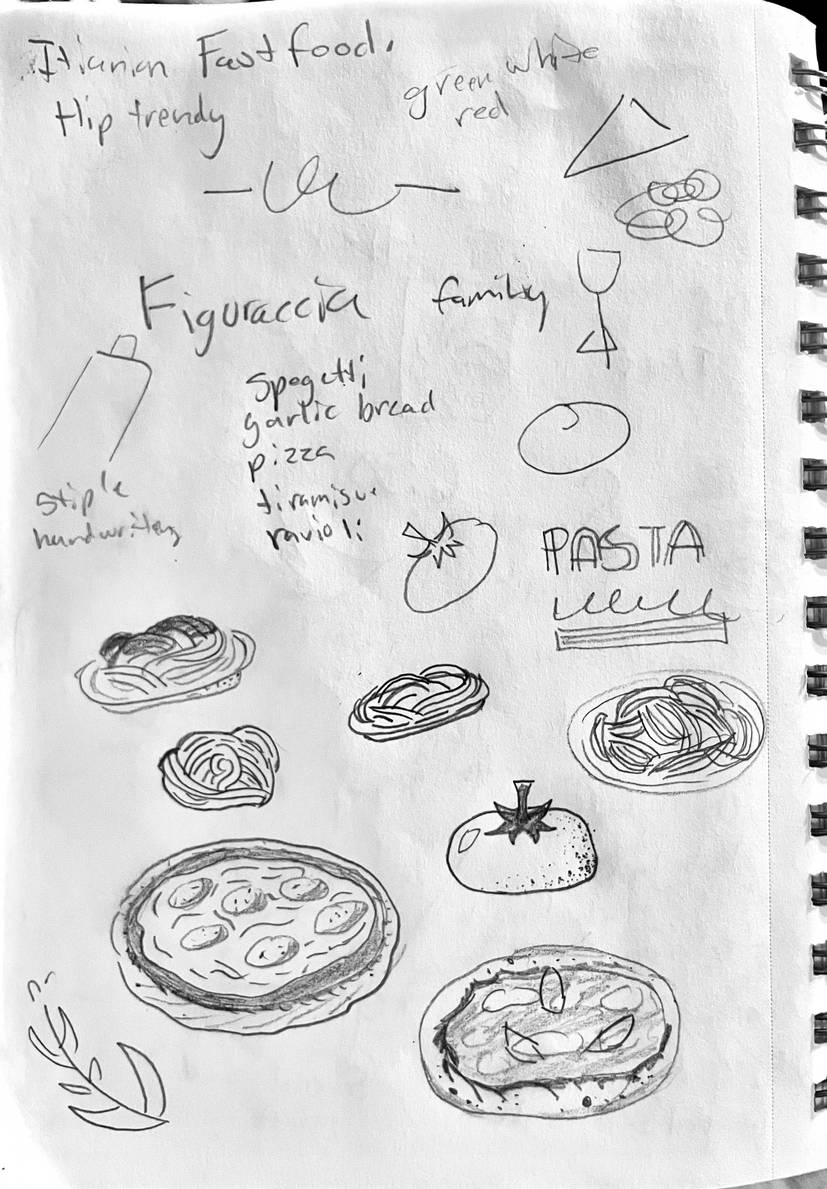 Itianian Fast food.
Hip trendy
green white
red
Figuraccia
family
Spagetti
garlic bread
pizza
tiramisu
ravioli
Stiple
handwriting
PASTA